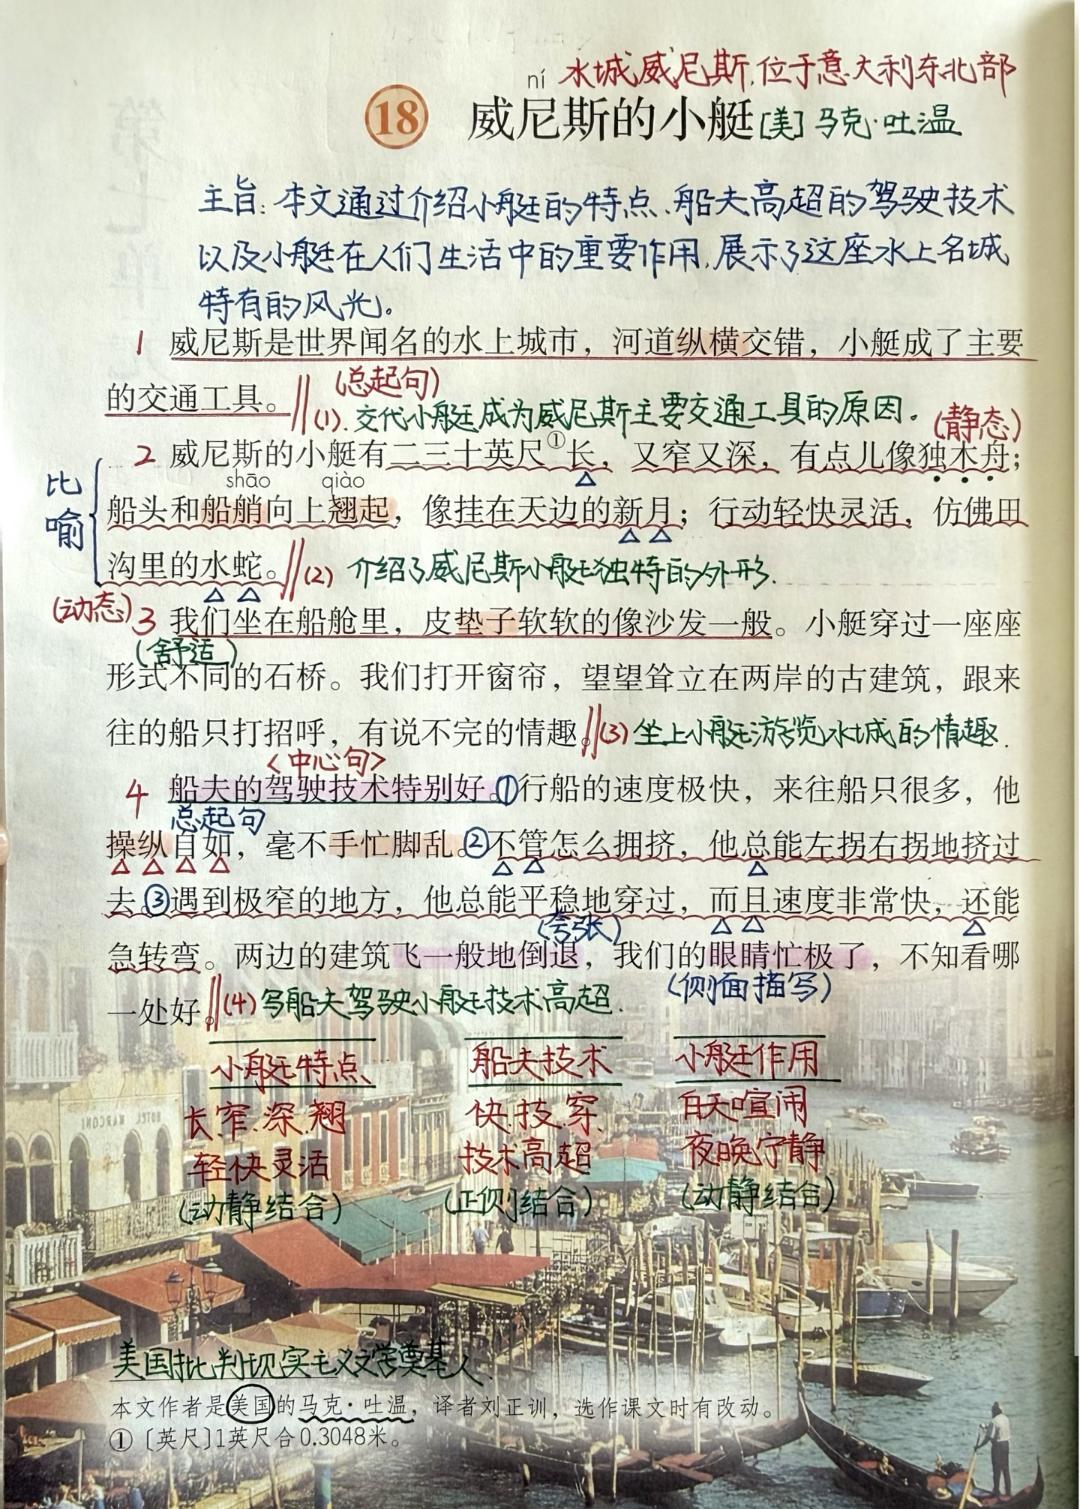 水城威尼斯,位于意大利东北部
ní
18 威尼斯的小艇 [美]马克·吐温
主旨:本文通过介绍小艇的特点、船夫高超的驾驶技术
以及小艇在人们生活中的重要作用,展示了这座水上名城
特有的风光。
1 威尼斯是世界闻名的水上城市，河道纵横交错，小艇成了主要
的交通工具。(总起句)
(1).交代小艇成为威尼斯主要交通工具的原因。(静态)
2 威尼斯的小艇有二三十英尺①长，又窄又深，有点儿像独木舟；
比喻
shāo qiào
船头和船艄向上翘起，像挂在天边的新月；行动轻快灵活，仿佛田
沟里的水蛇。(2) 介绍了威尼斯小艇独特的外形.
(动态) 3 我们坐在船舱里，皮垫子软软的像沙发一般。小艇穿过一座座
(舒适)
形式不同的石桥。我们打开窗帘，望望耸立在两岸的古建筑，跟来
往的船只打招呼，有说不完的情趣。(3)坐上小艇游览水城的情趣.
<中心句>
4 船夫的驾驶技术特别好。①行船的速度极快，来往船只很多，他
总起句
操纵自如，毫不手忙脚乱。②不管怎么拥挤，他总能左拐右拐地挤过
去。③遇到极窄的地方，他总能平稳地穿过，而且速度非常快，还能
(夸张)
急转弯。两边的建筑飞一般地倒退，我们的眼睛忙极了，不知看哪
(侧面描写)
一处好。(4)写船夫驾驶小艇技术高超.
小艇特点 船夫技术 小艇作用
长.窄.深.翘 快.技.穿. 白天喧闹
轻快灵活 技术高超 夜晚宁静
(动静结合) (正侧结合) (动静结合)
HOTEL MARCONI
美国批判现实主义文学奠基人.
本文作者是美国的马克·吐温，译者刘正训，选作课文时有改动。
①〔英尺〕1英尺合0.3048米。